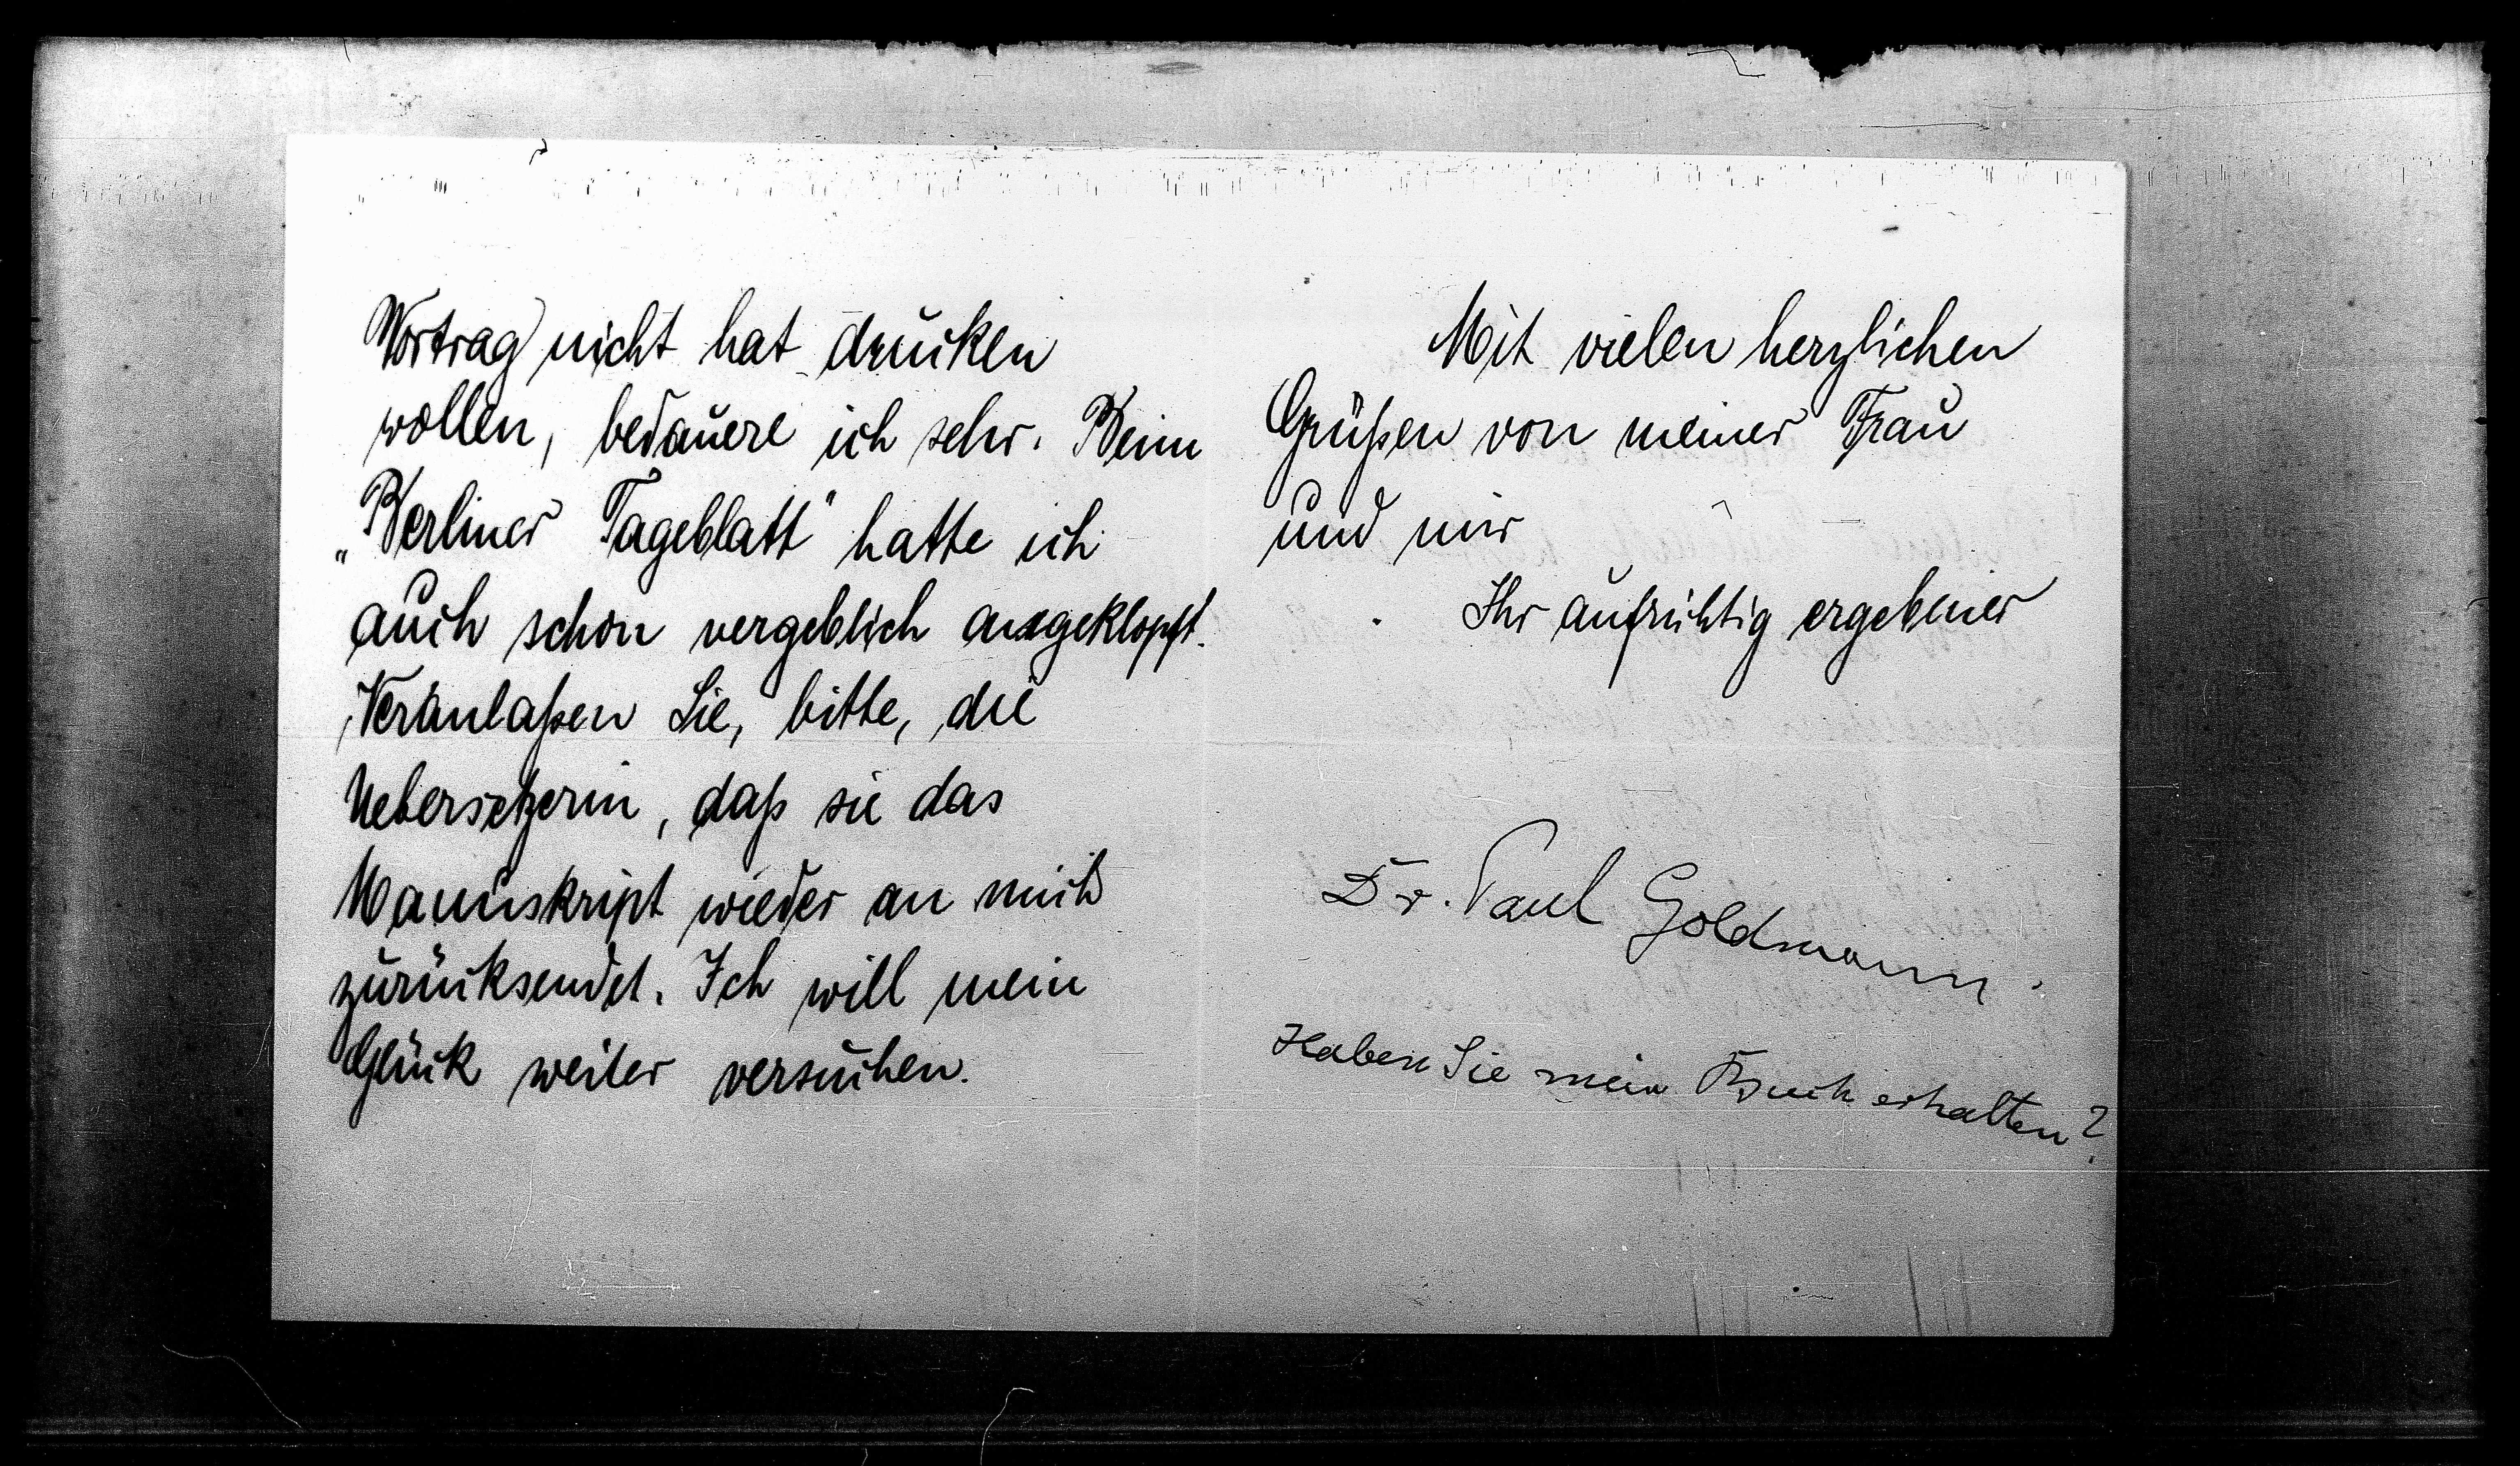 Vortrag nicht hat drucken
wollen, bedauere ich sehr. Beim
„Berliner Tageblatt" hatte ich
auch schon vergeblich angeklopft.
Veranlaßen Sie, bitte, die
Uebersetzerin, daß sie das
Manuskript wieder an mich
zurücksendet. Ich will mein
Glück weiter versuchen.
Mit vielen herzlichen
Grüßen von meiner Frau
und mir
Ihr aufrichtig ergebener
Dr. Paul Goldmann.
Haben Sie mein Buch erhalten?